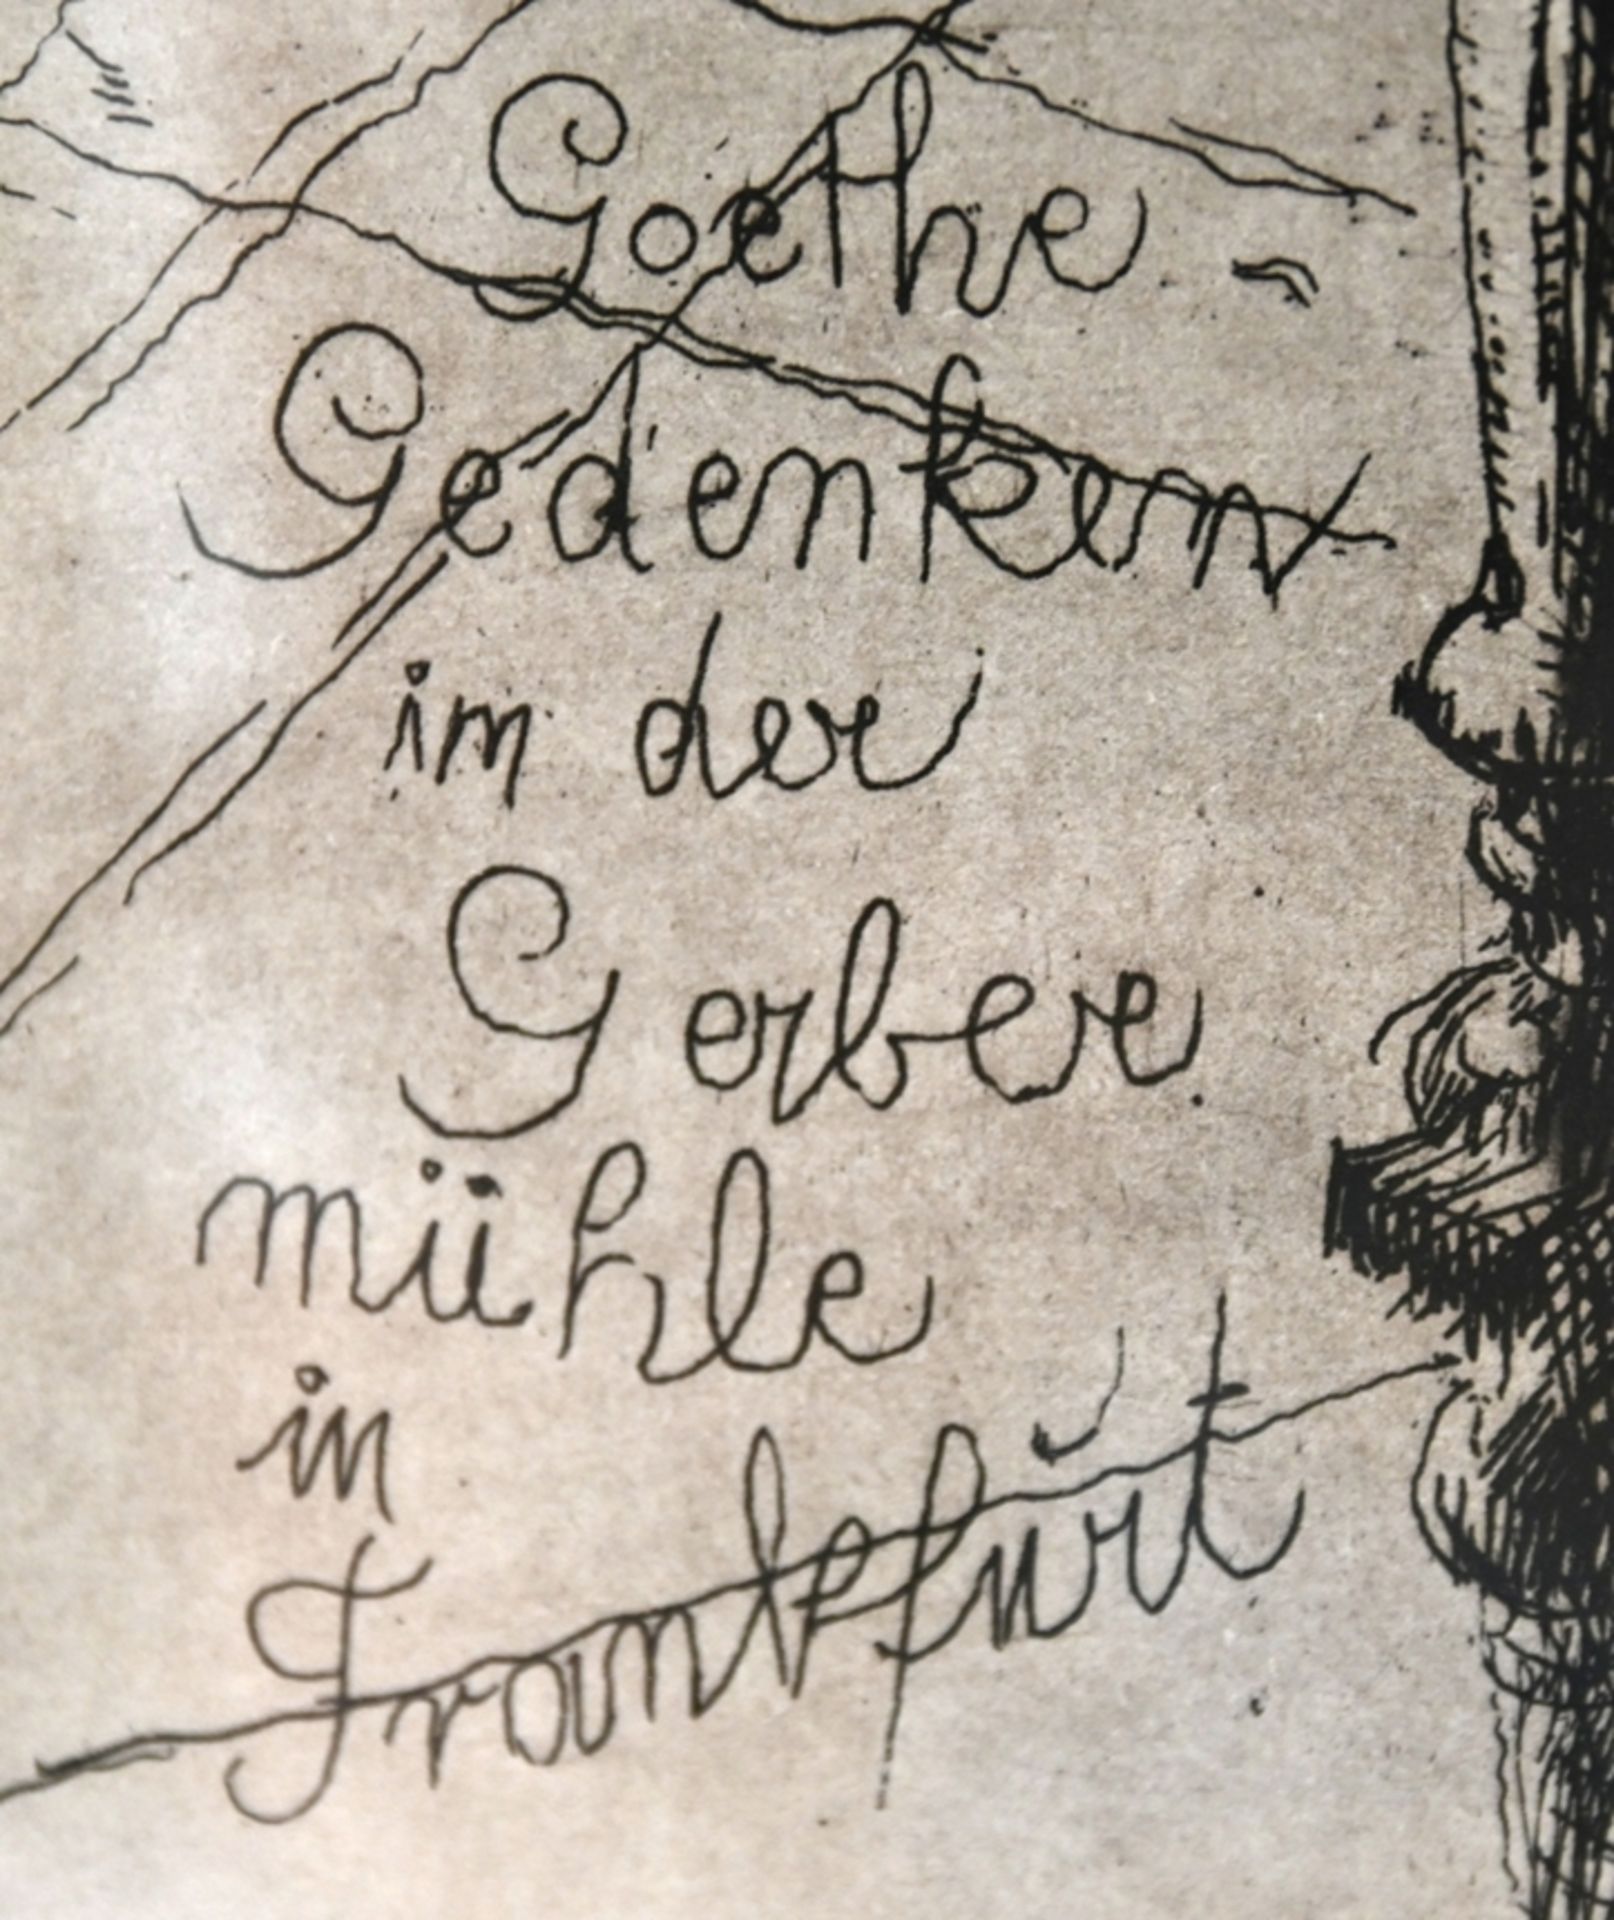 Goethe-
Gedenken
in der
Gerber
mühle
in
Frankfurt